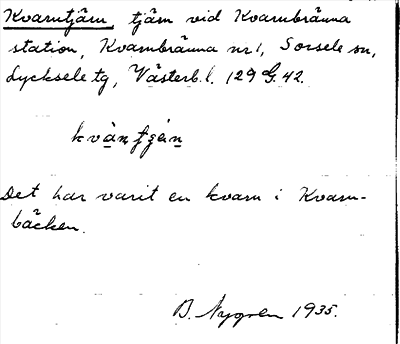 Kvarntjärn, tjärn vid Kvarnbränna
station, Kvarnbränna nr 1, Sorsele sn,
Lycksele tg, Västerb. l. 129 G. 42.
Det har varit en kvarn i Kvarn-
bäcken.
B. Nygren 1935.